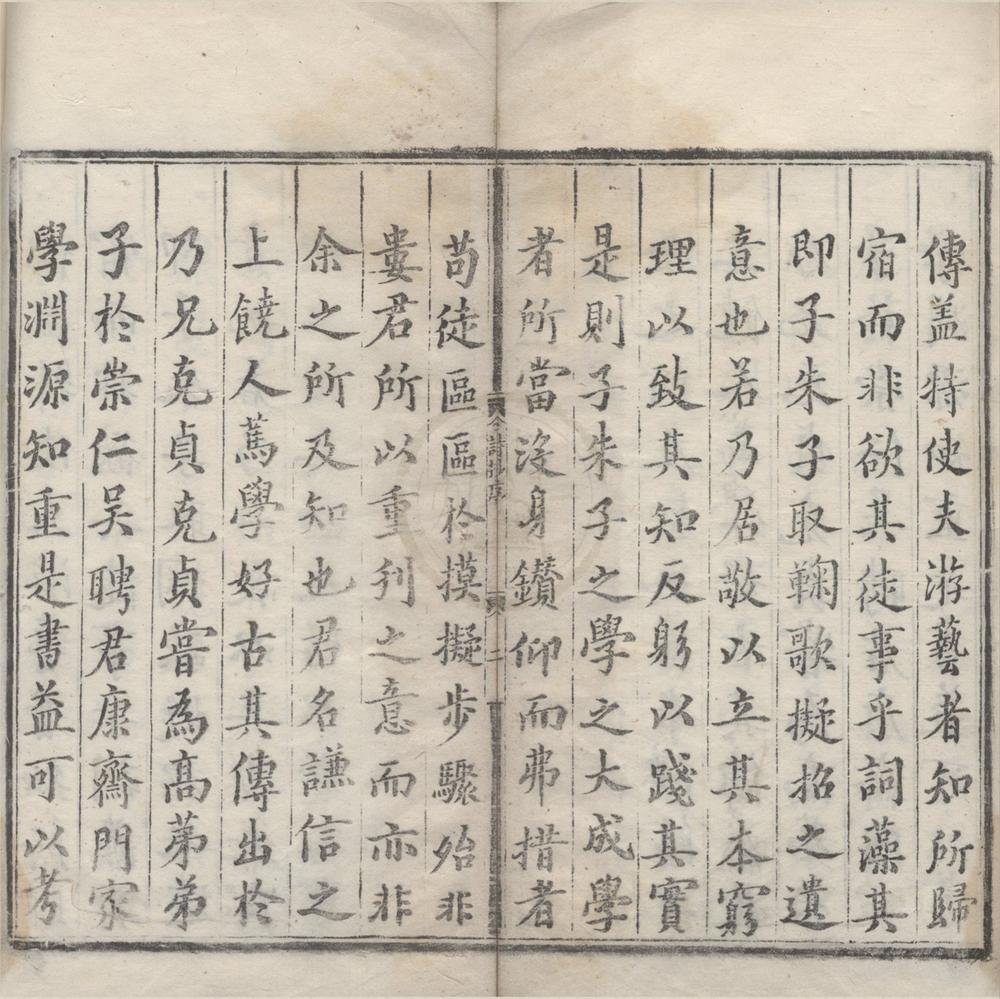 傳盖特使夫游藝者知所歸
宿而非欲其徒事乎詞藻其
即子朱子取鞠歌擬招之遺
意也若乃居敬以立其本窮
理以致其知反躬以踐其實
是則子朱子之學之大成學
者所當沒身鑽仰而弗措者
苟徒區區於摸擬步驟殆非
婁君所以重刋之意而亦非
余之所及知也君名謙信之
上饒人篤學好古其傳出於
乃兄克貞克貞嘗為高苐弟
子於崇仁吴聘君康齋門家
學淵源知重是書益可以考